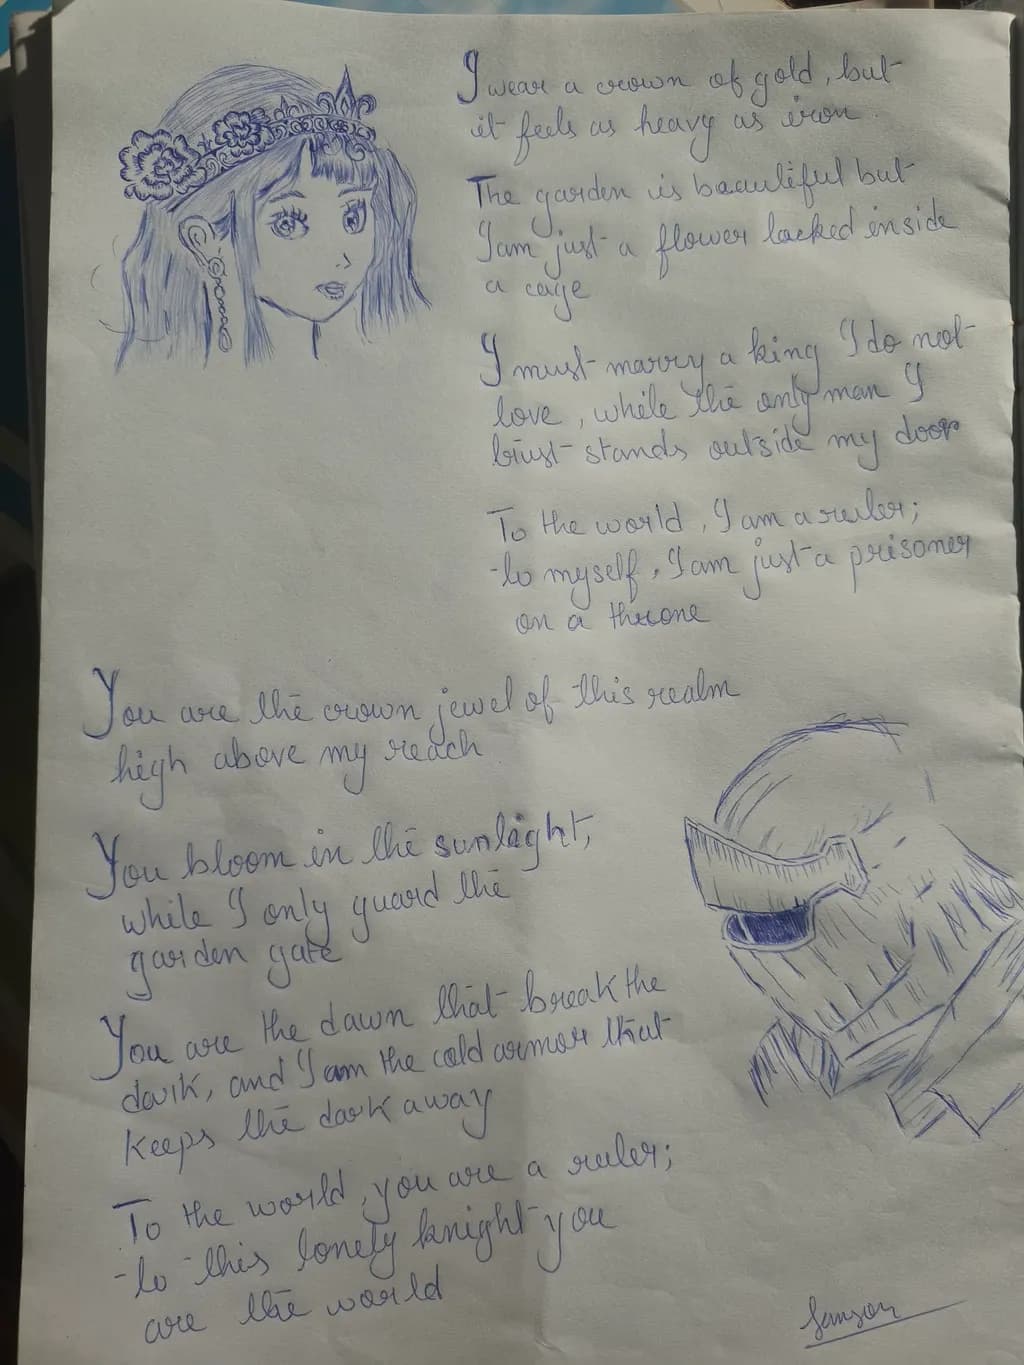 I wear a crown of gold, but
it feels as heavy as iron.
The garden is beautiful but
I am just a flower locked inside
a cage
I must marry a king I do not
love, while the only man I
trust stands outside my door
To the world, I am a ruler;
to myself, I am just a prisoner
on a throne
You are the crown jewel of this realm
high above my reach
You bloom in the sunlight,
while I only guard the
garden gate
You are the dawn that break the
dark, and I am the cold armor that
keeps the dark away
To the world, you are a ruler;
to this lonely knight you
are the world